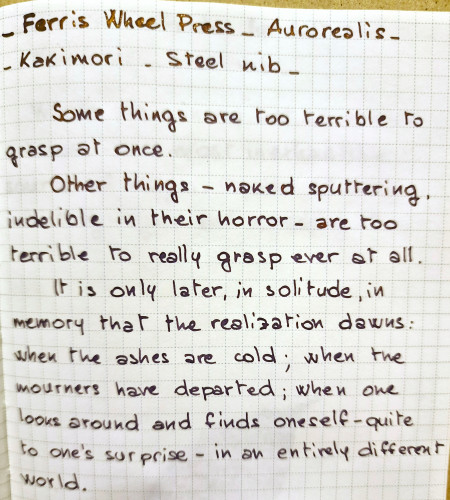 _ Ferris Wheel Press _ Aurorealis _
_ Kakimori _ Steel nib _
Some things are too terrible to
grasp at once.
Other things - naked sputtering,
indelible in their horror - are too
terrible to really grasp ever at all.
It is only later, in solitude, in
memory that the realization dawns:
when the ashes are cold; when the
mourners have departed; when one
looks around and finds oneself - quite
to one's surprise - in an entirely different
world.